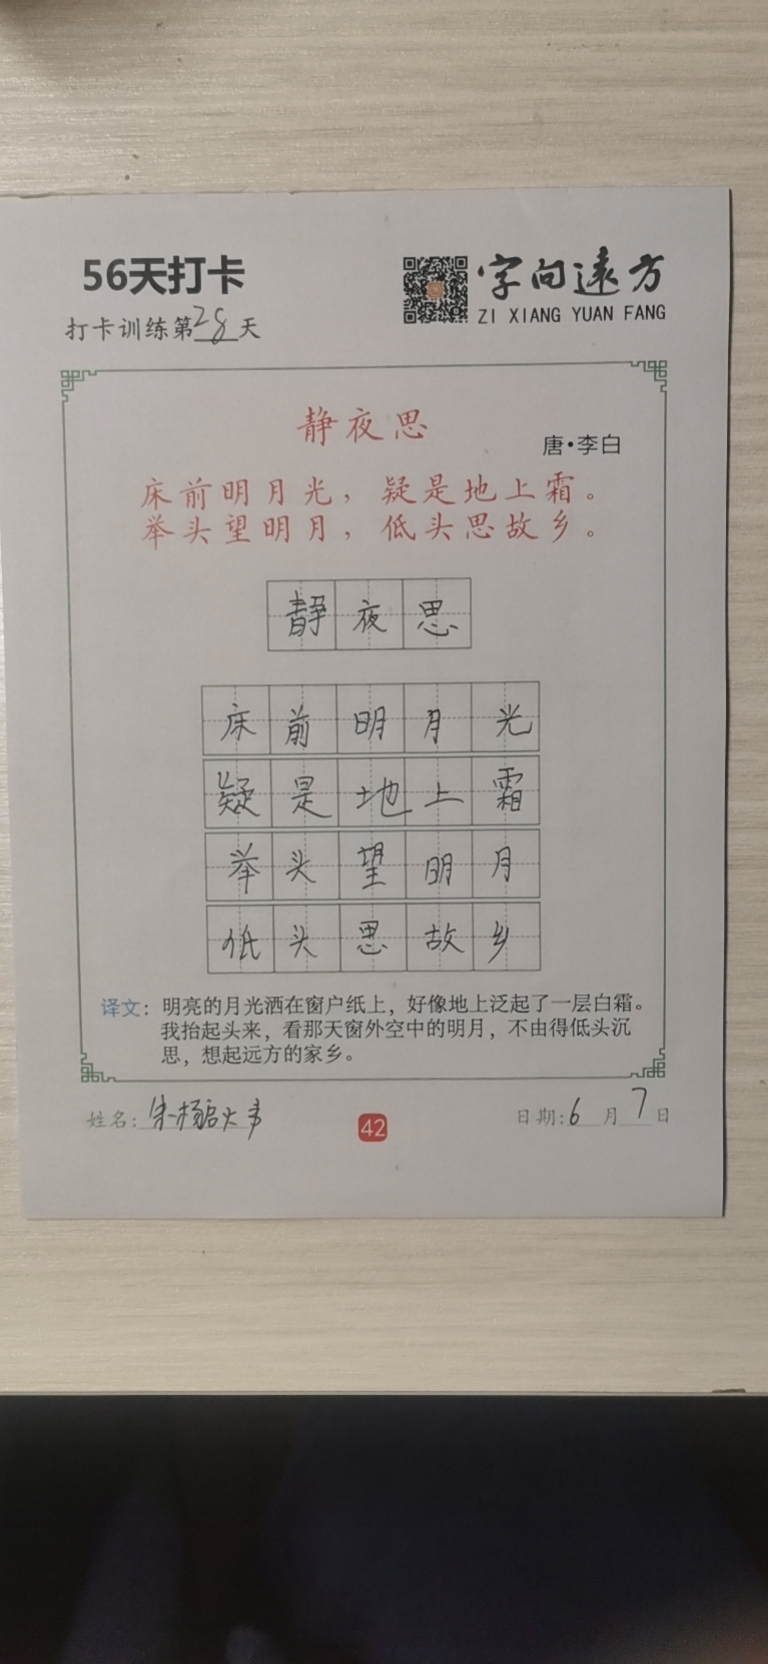 56天打卡
字向遠方
ZI XIANG YUAN FANG
打卡训练第28天
静夜思
唐·李白
床前明月光，疑是地上霜。
举头望明月，低头思故乡。
静夜思
床前明月光
疑是地上霜
举头望明月
低头思故乡
译文：明亮的月光洒在窗户纸上，好像地上泛起了一层白霜。
我抬起头来，看那天窗外空中的明月，不由得低头沉
思，想起远方的家乡。
姓名：
42
日期：6月7日